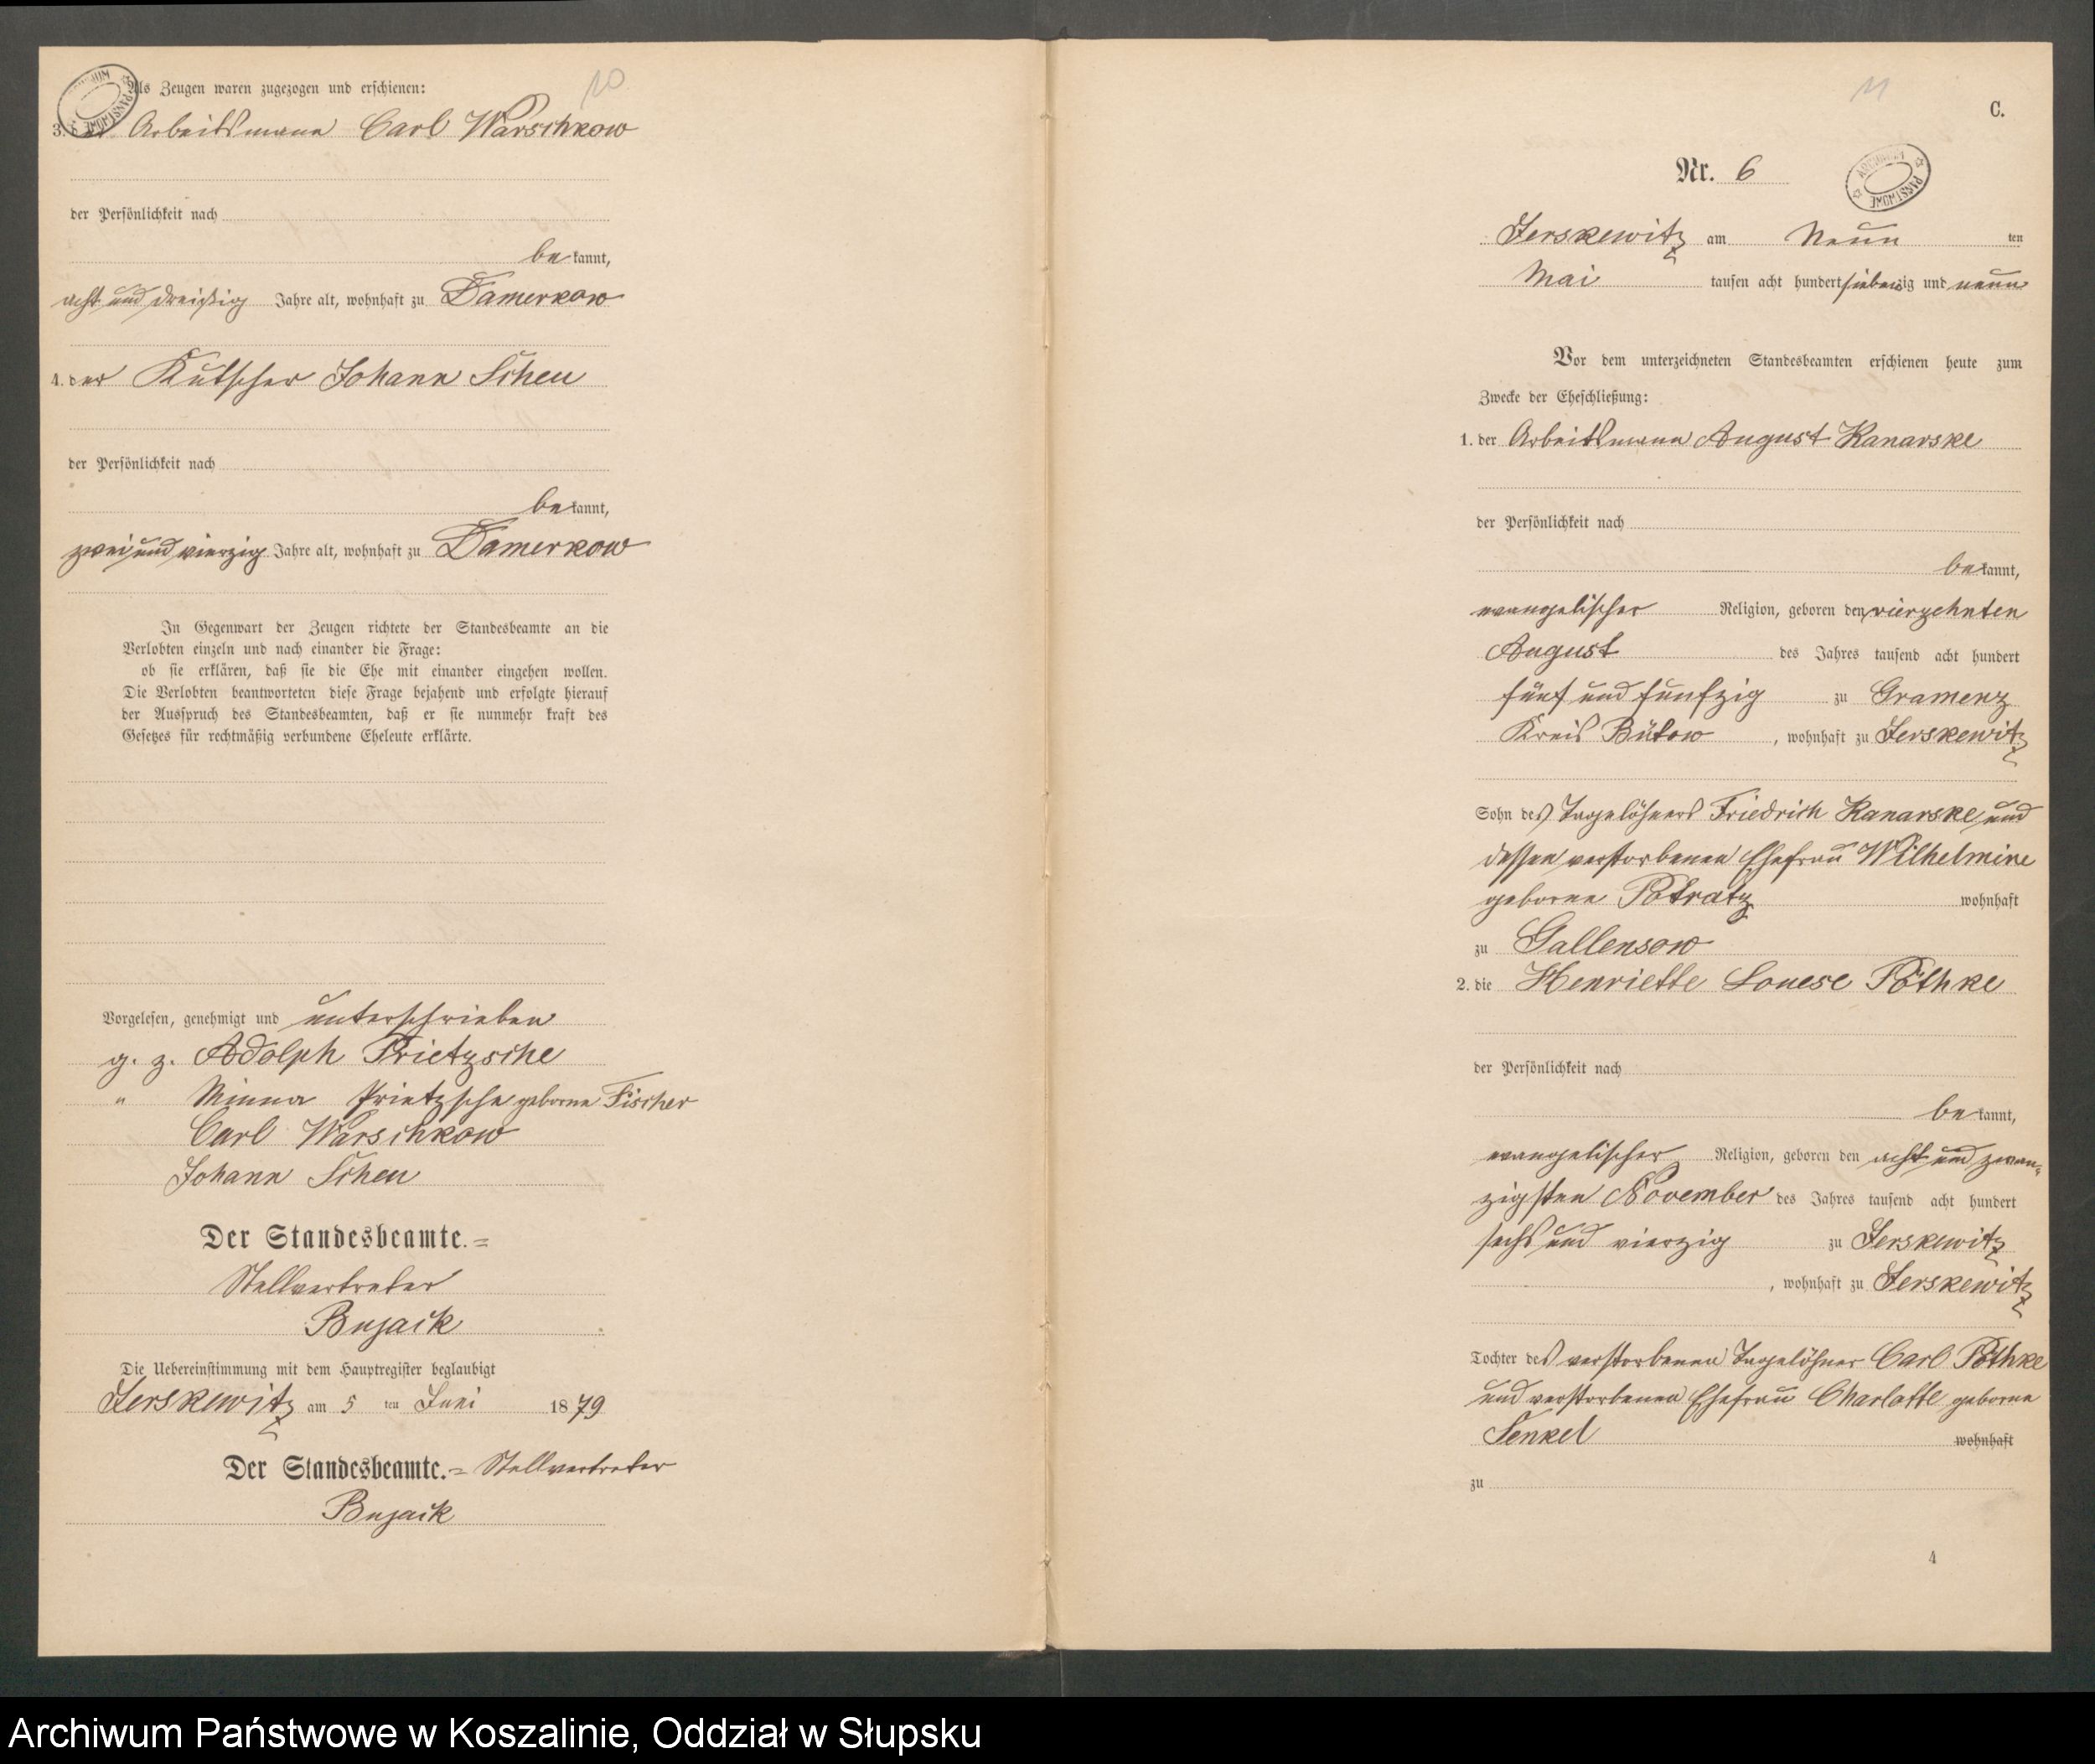 10
Als Zeugen waren zugezogen und erschienen:
3. der Arbeitsmann Carl Warschkow
der Persönlichkeit nach
be kannt,
acht und dreißig Jahre alt, wohnhaft zu Damerkow
4. der Kutscher Johann Scheu
der Persönlichkeit nach
be kannt,
zwei und vierzig Jahre alt, wohnhaft zu Damerkow
In Gegenwart der Zeugen richtete der Standesbeamte an die
Verlobten einzeln und nach einander die Frage:
ob sie erklären, daß sie die Ehe mit einander eingehen wollen.
Die Verlobten beantworteten diese Frage bejahend und erfolgte hierauf
der Ausspruch des Standesbeamten, daß er sie nunmehr kraft des
Gesetzes für rechtmäßig verbundene Eheleute erkläre.
Vorgelesen, genehmigt und unterschrieben
g. z. Adolph Prietzsche
" Minna Prietzsche geborne Fischer
Carl Warschkow
Johann Scheu
Der Standesbeamte.=
Stellvertreter
Bujack
Die Uebereinstimmung mit dem Hauptregister beglaubigt
Jerskewitz am 5 ten Juni 1879
Der Standesbeamte.= Stellvertreter
Bujack
11
C.
Nr. 6
ARCHIWUM PAŃSTWOWE
Jerskewitz am Neun ten
Mai tausen acht hundert siebenzig und neun
Vor dem unterzeichneten Standesbeamten erschienen heute zum
Zwecke der Eheschließung:
1. der Arbeitsmann August Kanarske
der Persönlichkeit nach
be kannt,
evangelischer Religion, geboren den vierzehnten
August des Jahres tausend acht hundert
fünf und funfzig zu Gramenz
Kreis Bütow, wohnhaft zu Jerskewitz
Sohn des Tagelöhners Friedrich Kanarske und
dessen verstorbenen Ehefrau Wilhelmine
geborne Potratz wohnhaft
zu Gallensow
2. die Henriette Louese Pöthke
der Persönlichkeit nach
be kannt,
evangelischer Religion, geboren den acht und zwan-
zigsten November des Jahres tausend acht hundert
sechs und vierzig zu Jerskewitz
, wohnhaft zu Jerskewitz
Tochter des verstorbenen Tagelöhner Carl Pöthke
und verstorbenen Ehefrau Charlotte geborne
Senkel wohnhaft
zu
4
Archiwum Państwowe w Koszalinie, Oddział w Słupsku